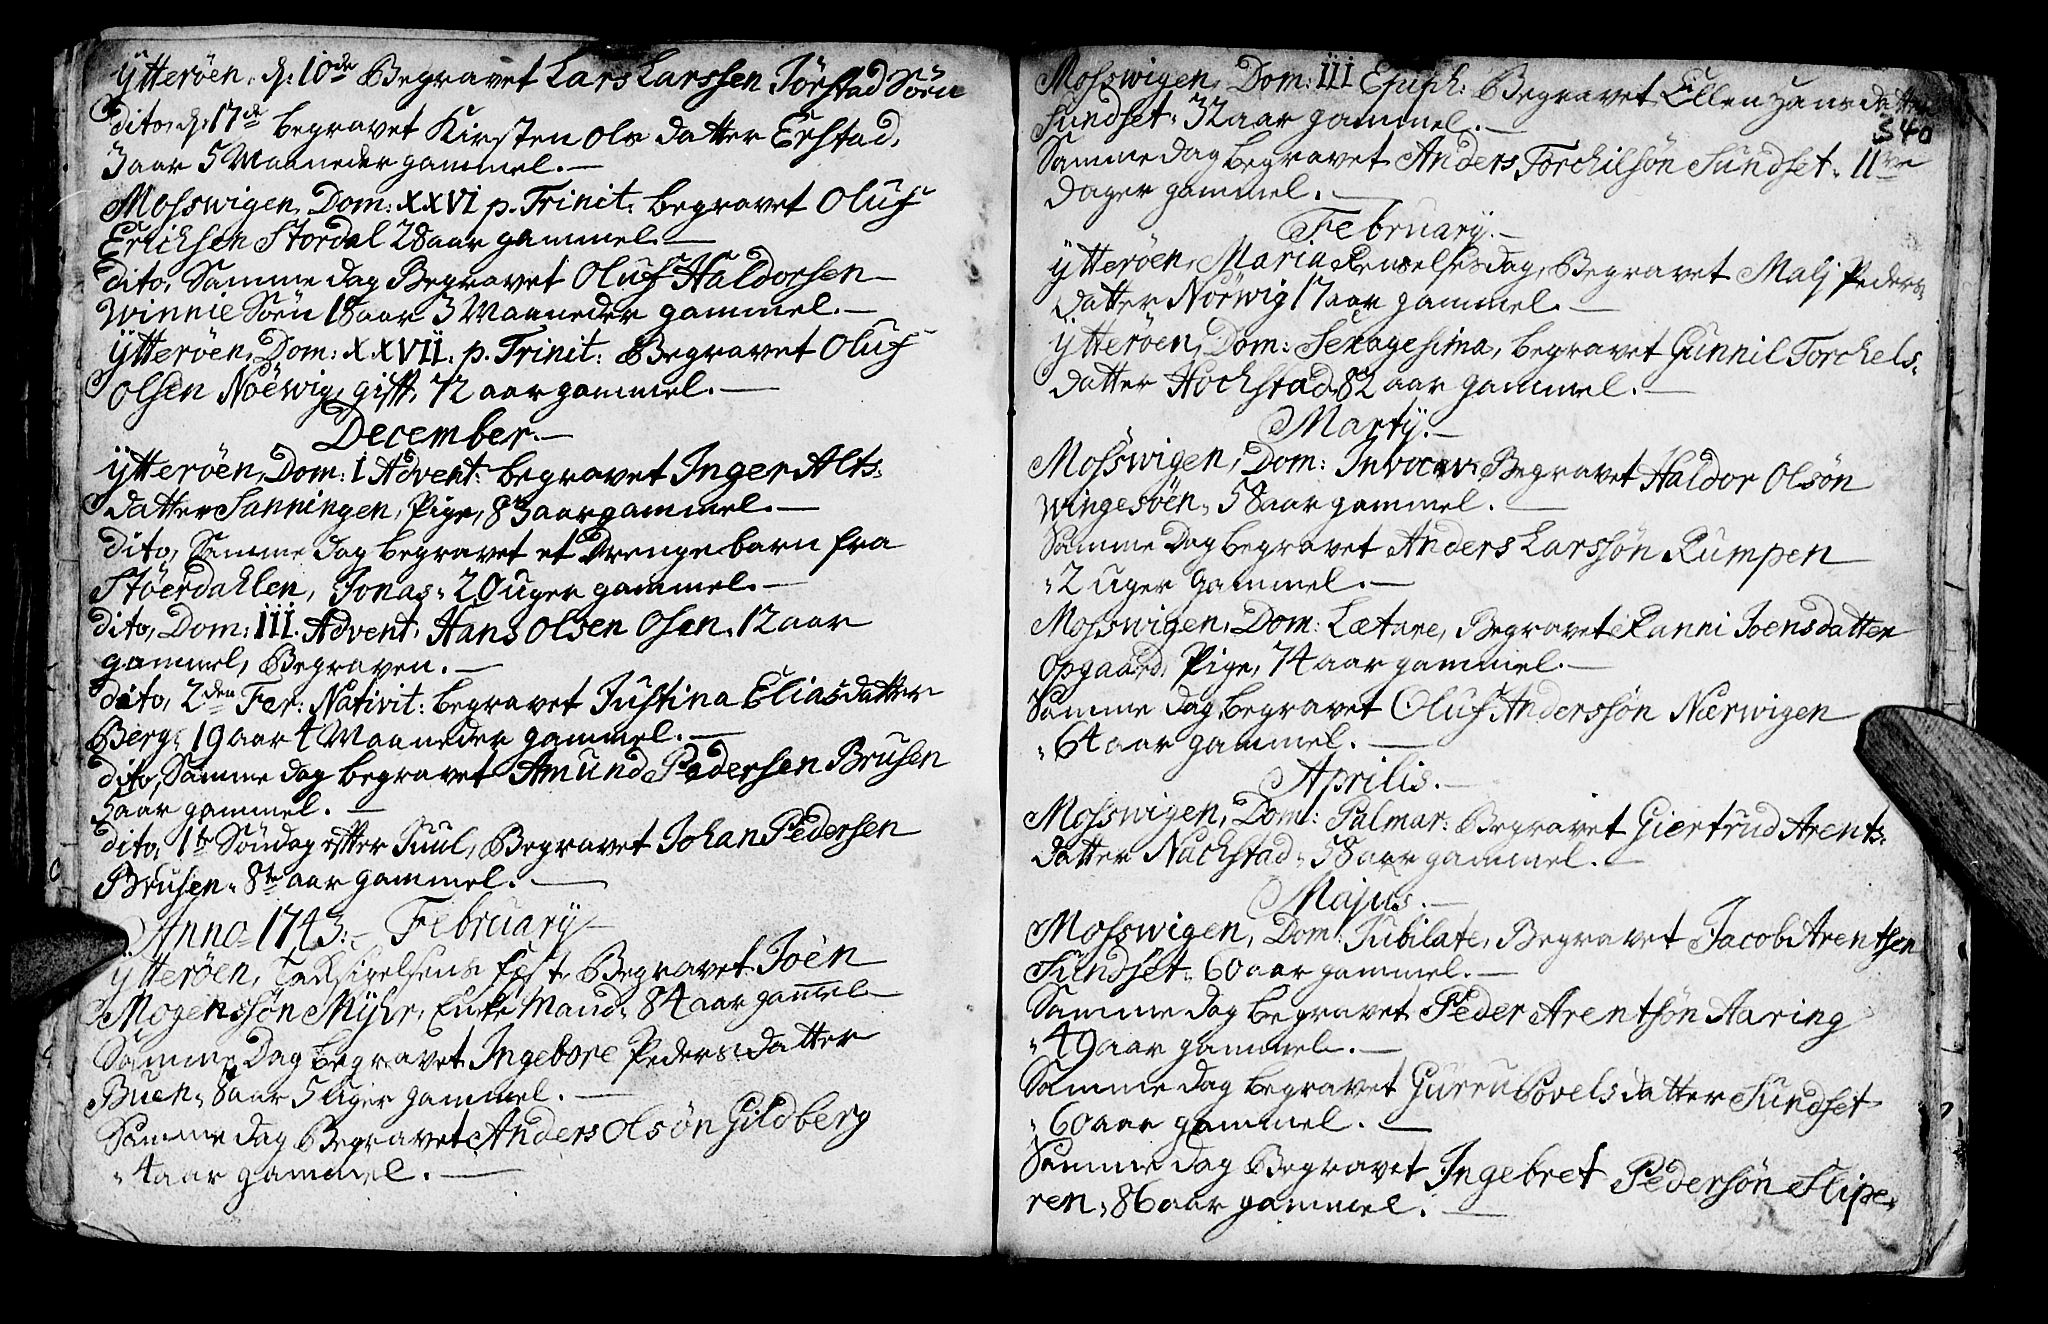 Ytterøen, d: 10de Begravet Lars Larssen Jørstad Søen
dito, d: 17de begravet Kirsten Ols datter Erstad,
3 aar 5 Maaneder gammel.
Mosswigen, Dom: XXVI p. Trinit: begravet Oluf
Erichsen Stordal 28 aar gammel
dito, Samme dag Begravet Oluf Haldorsen
Winnie Søen 18 aar 3 Maaneder gammel.
Ytterøen, Dom: XXVII. p. Trinit: Begravet Oluf
Olsen Noëwig, gift, 72 aar gammel.
December.
Ytterøen, Dom: I Advent: begravet Inger Alts-
datter Sanningen, Pige, 83 aar gammel.
dito, Samme dag begravet et Drenge barn fra
Støerdahlen, Jonas, 20 uger gammel.
dito, Dom: III. Advent, Hans Olsen Osen, 12 aar
gammel, Begraven.
dito, 2den Fer: Nativit: begravet Justina Eliasdatter
Berg, 19 aar 4 Maaneder gammel.
dito, Samme dag begravet Amund Pedersen Brusen
3 aar gammel.
dito, 1te Søndag efter Juul, Begravet Johan Pedersen
Brusen, 8te aar gammel.
Anno 1743. February
Ytterøen, Taksigelsens fest, Begravet Joën
Mogenssøn Myhr, Enke Mand, 84 aar gammel
Samme Dag begravet Ingebore Pedersdatter
Buen, 8 aar 5 Uger gammel.
Samme dag Begravet Anders Olsøn Gildberg
4 aar gammel.
Mosswigen, Dom: III Epiph: Begravet Ellen Hansdatter
340
Sundset, 32 aar gammel.
Samme dag begravet Anders Torchilsøn Sundset, 11ve
dager gammel.
February.
Ytterøen, Maria Renselses dag, Begravet Malj Peders-
datter Norwig 17 aar gammel.
Ytterøen, Dom: Sexagesima, begravet Gunnil Torchels-
datter Hochstad, 82 aar gammel.
Marty.
Mosswigen, Dom: Invocav: Begravet Haldor Olsøn
Wingesøen, 58 aar gammel.
Samme Dag begravet Anders Larssøn Rumpen
2 uger gammel.
Mosswigen, Dom: Lætare, Begravet Ranni Joensdatter
Opgaard, Pige, 74 aar gammel.
Samme dag begravet Oluf Anderssøn Nærwigen
64 aar gammel.
Aprilis.
Mosswigen, Dom: Palmar: Begravet Giertrud Arents-
datter Nachstad, 58 aar gammel.
Majus.
Mosswigen, Dom: Jubilate, Begravet Jacob Arentsen
Sundset, 60 aar gammel.
Samme dag begravet Peder Arentsøn Aaring
49 aar gammel.
Samme dag begravet Gurru Povelsdatter Sundset
60 aar gammel.
Samme dag Begravet Ingebret Pedersøn Slipe-
ren, 86 aar gammel.